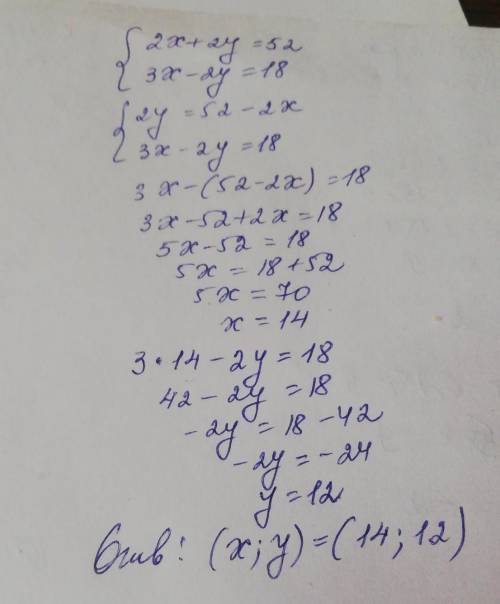 { 2x+2y=52
{ 3x-2y=18
{ 2y=52-2x
{ 3x-2y=18
3x-(52-2x)=18
3x-52+2x=18
5x-52=18
5x=18+52
5x=70
x=14
3·14-2y=18
42-2y=18
-2y=18-42
-2y=-24
y=12
Отв: (x;y)=(14;12)